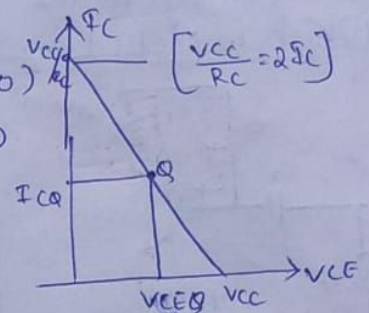 IC
VCC
RC
0)
[VCC/RC = 2IC]
)
ICQ
Q
VCE
VCEQ VCC